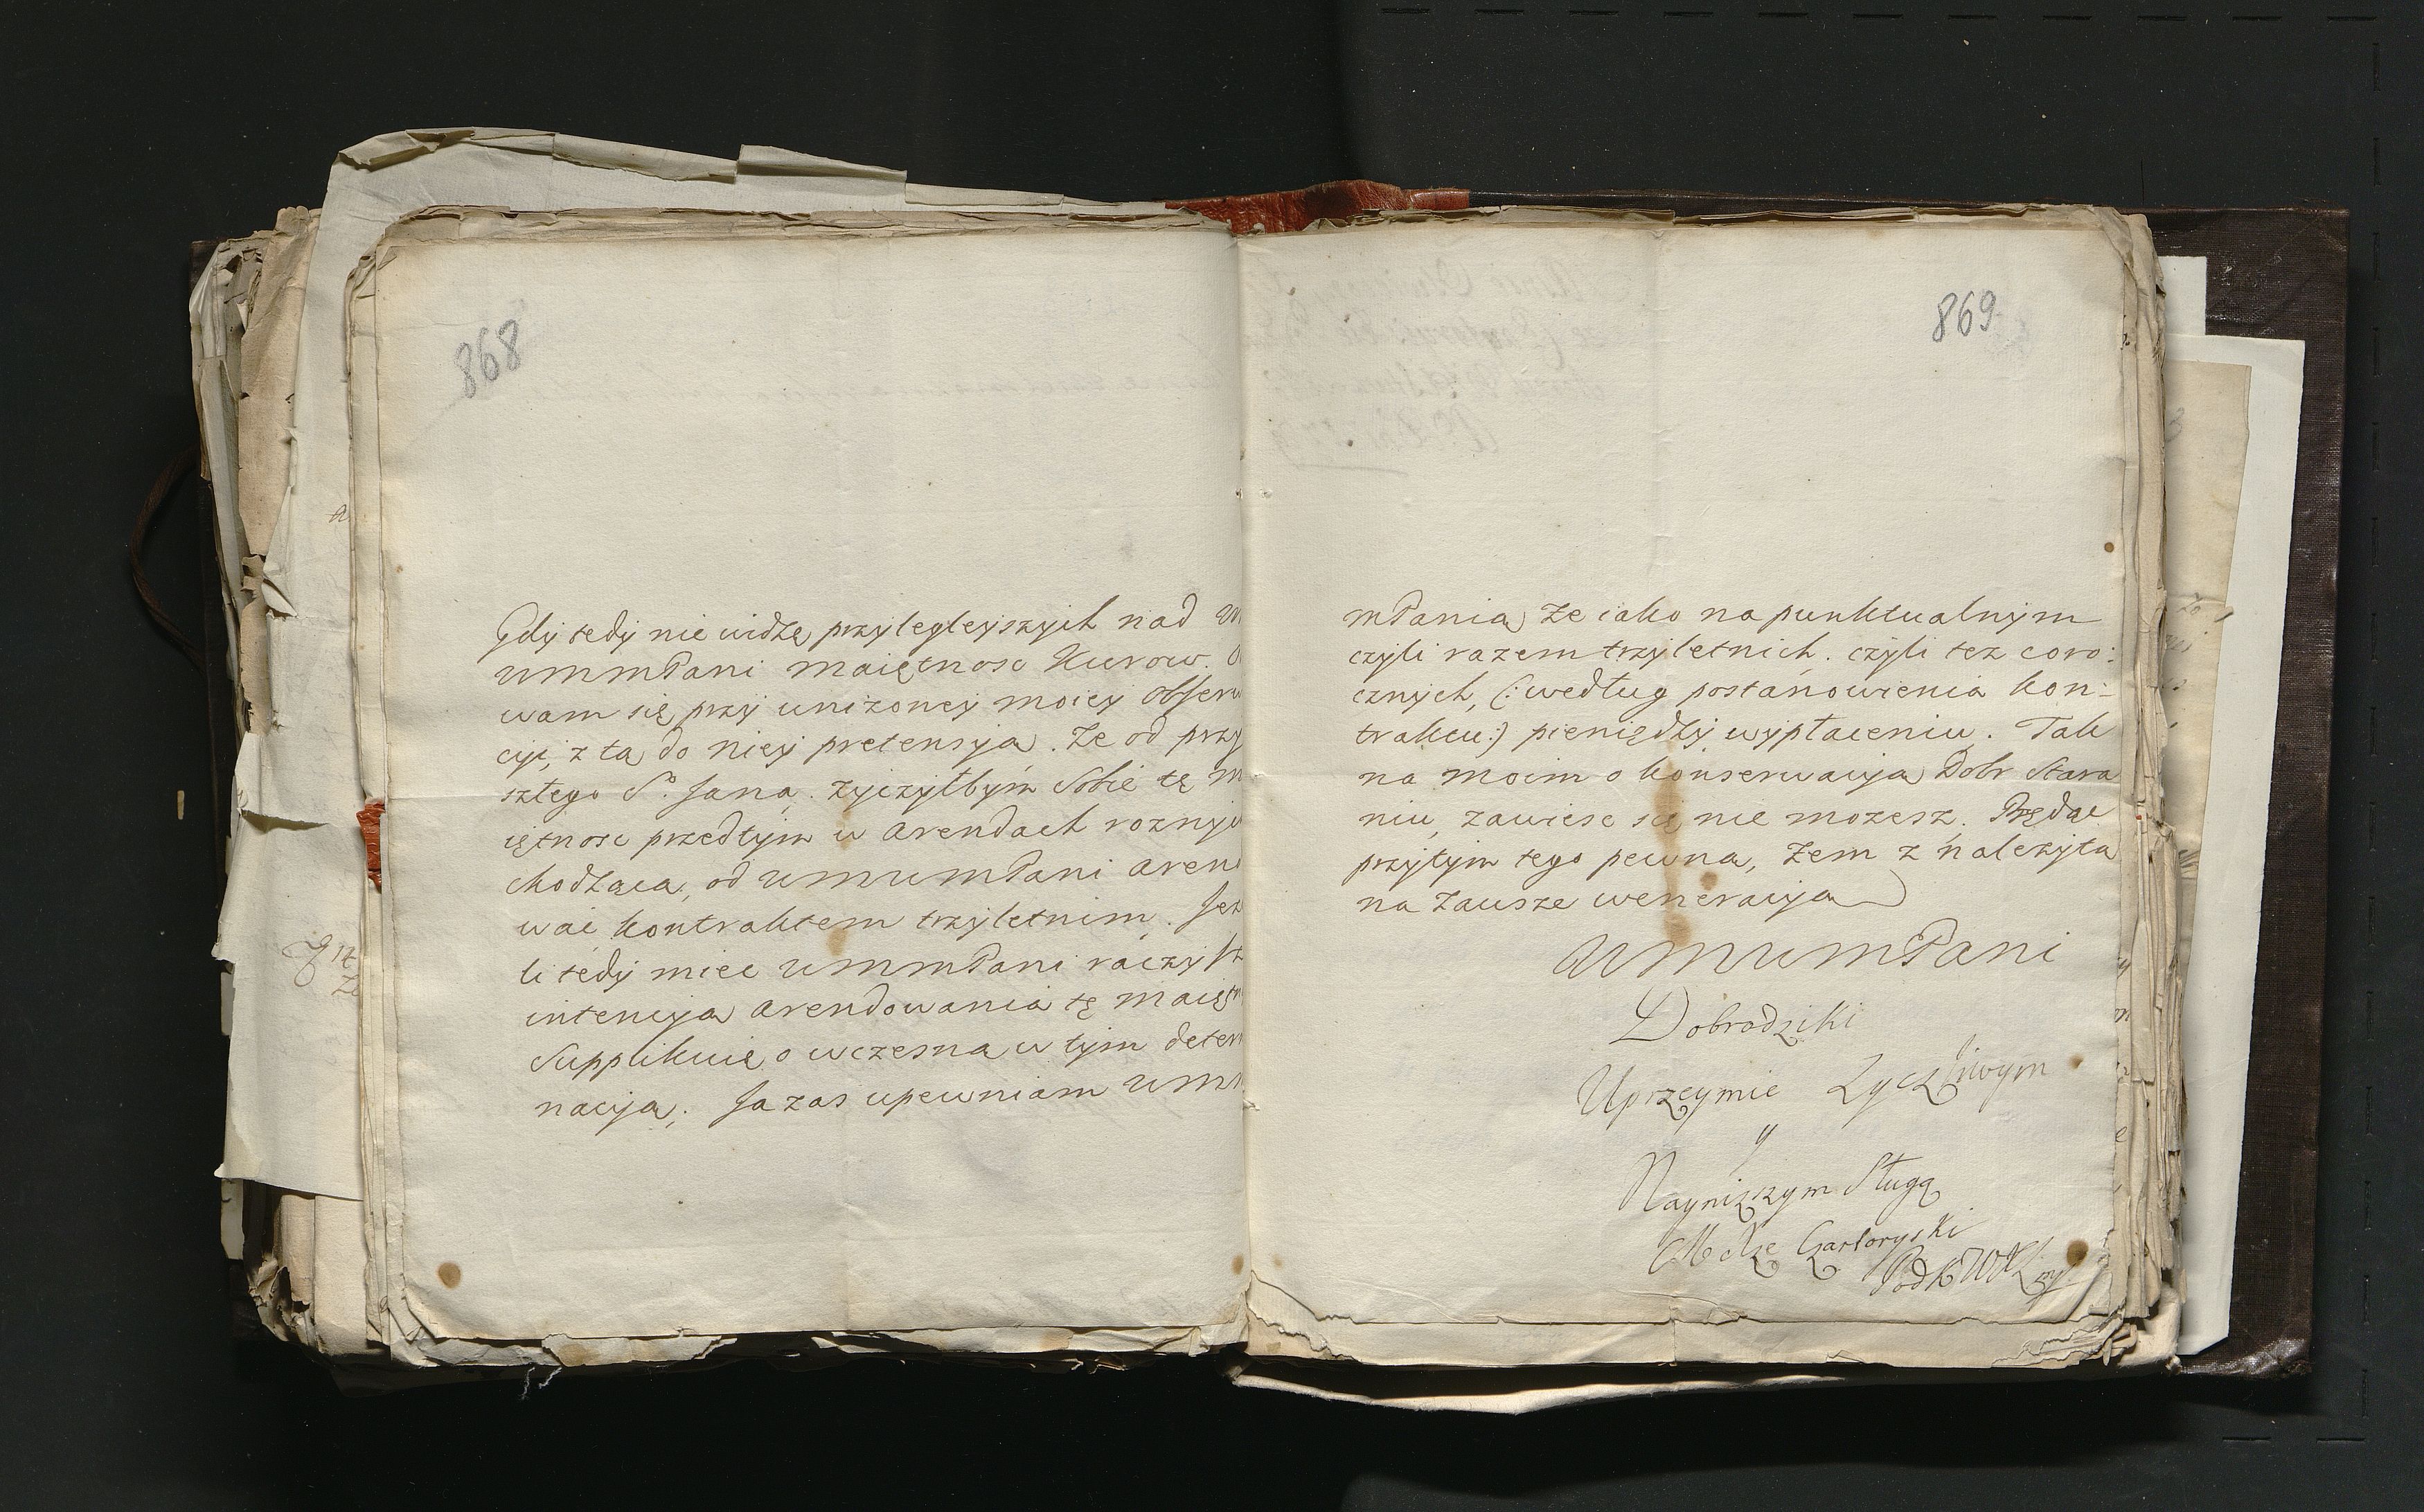 868
Gdÿ tedÿ nie widzę przÿlegleÿszÿch nad
WMMPani maiętnosc Kurow.
wam się przÿ unizoneÿ moieÿ Obser
cÿi, z tą do nieÿ pretensÿą. Ze od przÿ
szłego S.° Jana. Zÿczÿłbÿm Sobie tę M
iętnosc przedtÿm w Arendach roznÿ
chodzącą, od WMWMPani Aren
wać kontraktem trzÿletnim. Jez
li tedÿ miec WMMPani raczÿsz
intencÿą Arendowania tę maięt
Supplikuię o wczesną w tÿm deter
nacÿą; Ja zas upewniam WM
869
MPanią Ze iako na punktualnÿm
czÿli razem trzÿletnich. czÿli tez coro:
cznÿch, (: według postanowienia kon:
traktu:) pieniędzÿ wÿpłaceniu. Tak
na moim o konserwacÿą Dobr Stara
niu, zawiesc się nie mozesz. Bęđąc
przÿtÿm tego pewna, Zem z nalezÿtą
na Zawsze weneracÿą
WMWMPani
Dobrodziki
Uprzeymie Zyczliwym
y
Naynizszym Sługą
M Xże Czartoryski
Podk WXL mp